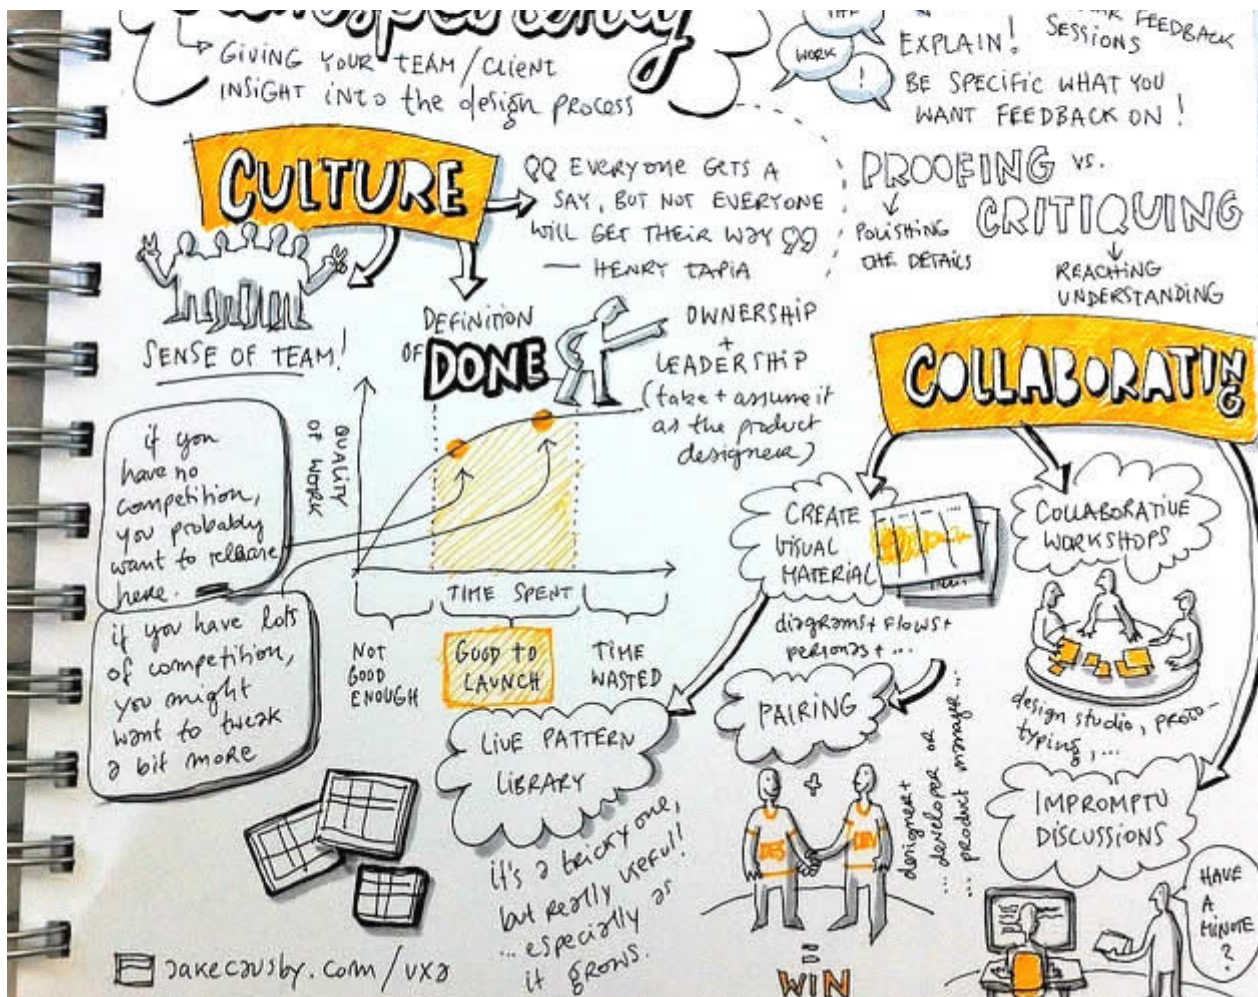 GIVING YOUR TEAM/CLIENT
INSIGHT INTO the design process
WORK
!
EXPLAIN!
FEEDBACK
SESSIONS
BE SPECIFIC WHAT YOU
WANT FEEDBACK ON!
CULTURE
EVERYONE GETS A
SAY, BUT NOT EVERYONE
WILL GET THEIR WAY
— HENRY TAPIA
PROOFING vs.
CRITIQUING
POLISHING
THE DETAILS
REACHING
UNDERSTANDING
SENSE OF TEAM!
DEFINITION
OF DONE
OWNERSHIP
+
LEADERSHIP
(take + assume it
as the product
designer)
if you
have no
competition,
you probably
want to release
here.
if you have lots
of competition,
you might
want to tweak
a bit more
QUALITY
OF WORK
TIME SPENT
NOT
GOOD
ENOUGH
GOOD TO
LAUNCH
TIME
WASTED
COLLABORATING
CREATE
VISUAL
MATERIAL
diagrams + flows +
personas + ...
COLLABORATIVE
WORKSHOPS
design studio, proto-
typing, ...
LIVE PATTERN
LIBRARY
it's a tricky one,
but really useful!
... especially as
it grows.
PAIRING
+
DES
DEV
designer +
... developer or
... product manager ...
=
WIN
IMPROMPTU
DISCUSSIONS
HAVE
A
MINUTE
?
jakecausby.com/uxa